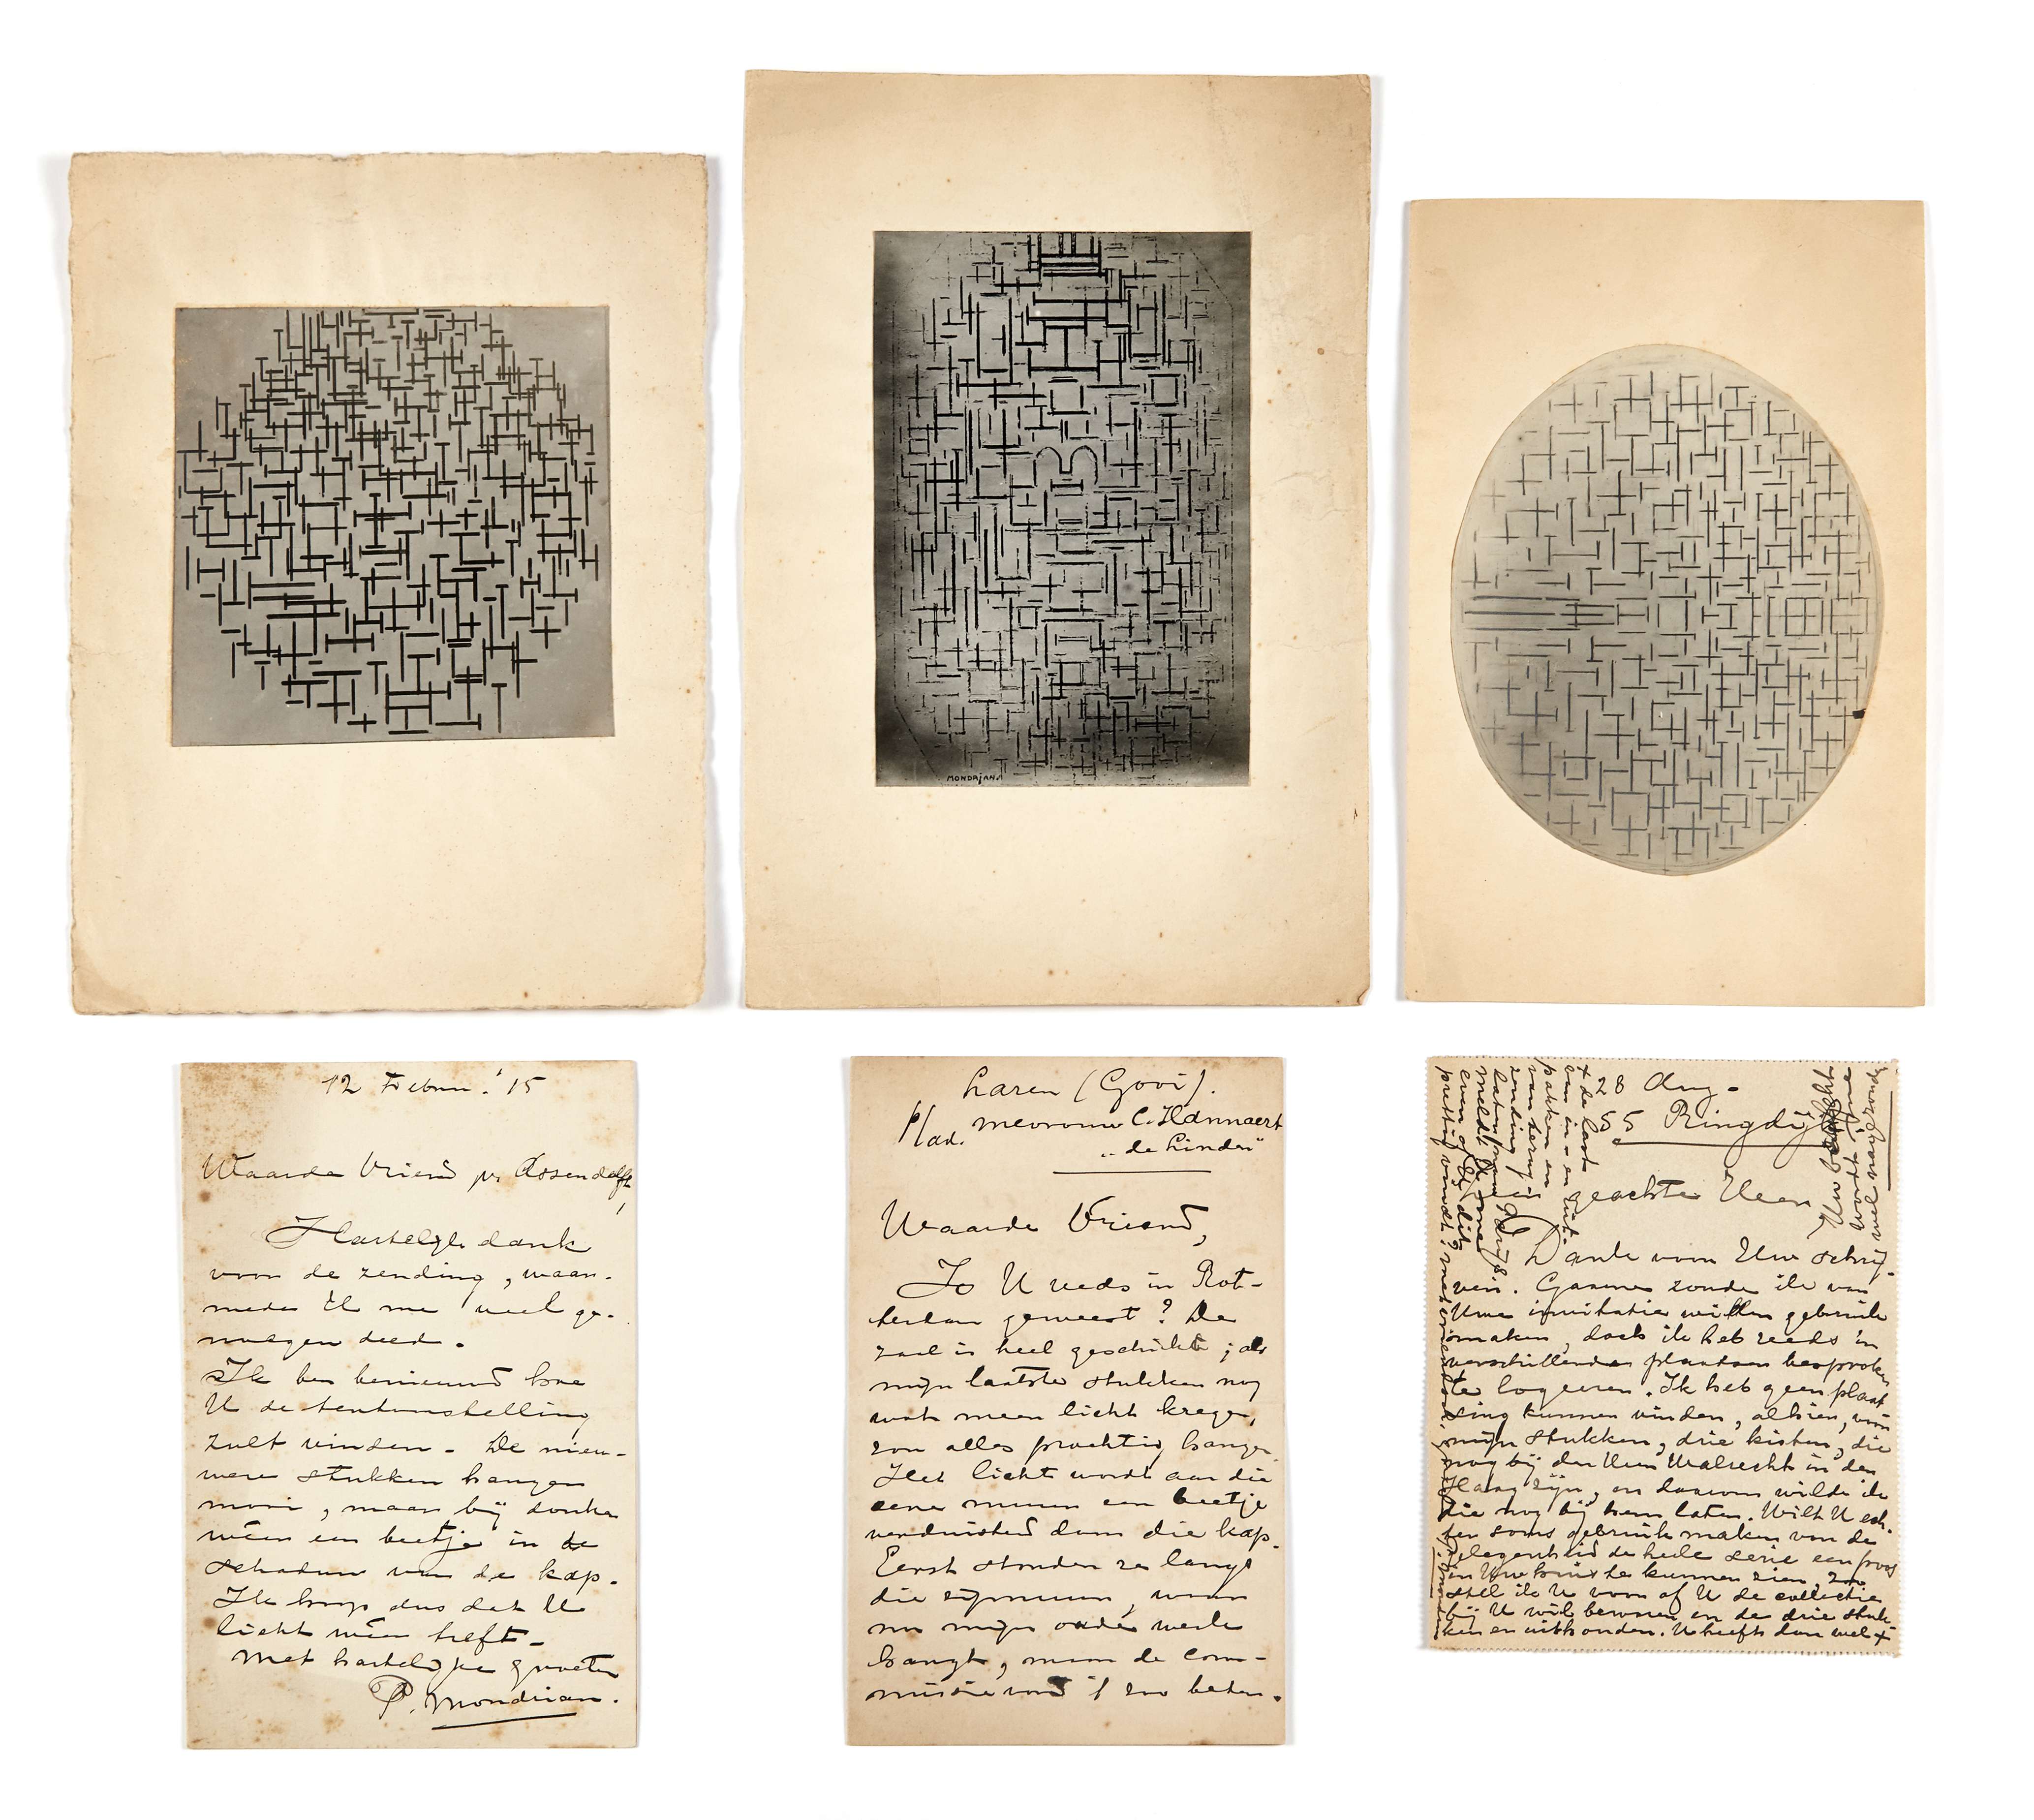 MONDRIAN.
12 Febru. '15
Waarde Vriend v. Assendelft,
Hartelijk dank
voor de zending, waar-
mede U me veel ge-
noegen deed.
Ik ben benieuwd hoe
U de tentoonstelling
zult vinden. De nieu-
were stukken hangen
mooi, maar bij donker
weer een beetje in de
schaduw van de kap.
Ik hoop dus dat U
licht weer treft.
Met hartelijke groeten
P. Mondrian.
Laren (Gooi).
p/ad. mevrouw C. Hannaert
„de Linden"
Waarde Vriend,
Is U reeds in Rot-
terdam geweest? De
zaal is heel geschikt; als
mijn laatste stukken nog
wat meer licht kregen,
zou alles prachtig hangen.
Het licht wordt aan die
eene muur een beetje
verduisterd door die kap.
Eerst stonden ze langs
die zijmuur, waar
nu mijn ouder werk
hangt, maar de com-
missie vond 't zoo beter.
28 Aug.
55 Ringdijk
geachte Heer
Dank voor Uw schrij-
ven. Gaarne zoude ik van
Uwe invitatie willen gebruik
maken, doch ik heb reeds in
verschillende plaatsen besproken
te logeeren. Ik heb geen plaat
sing kunnen vinden, alhier, voor
mijn stukken, drie kisten, die
nog bij den Heer Walrecht in den
Haag zijn, en daarom wilde ik
die nog bij hem laten. Wilt U ech-
ter soms gebruik maken van de
gelegenheid de hele serie een poos
in Uw huis te kunnen zien, zoo
stel ik U voor of U de collectie
bij U wil bewaren en de drie stuk-
ken er uithouden. U heeft dan wel +
+ de last
van in- en uit-
pakken en
van terug-
zending
laten
meldt U me
even of U dit
prettig vindt? met vriendsch. gr.
P. Mondrian
Uw
wordt
wel nagezonden